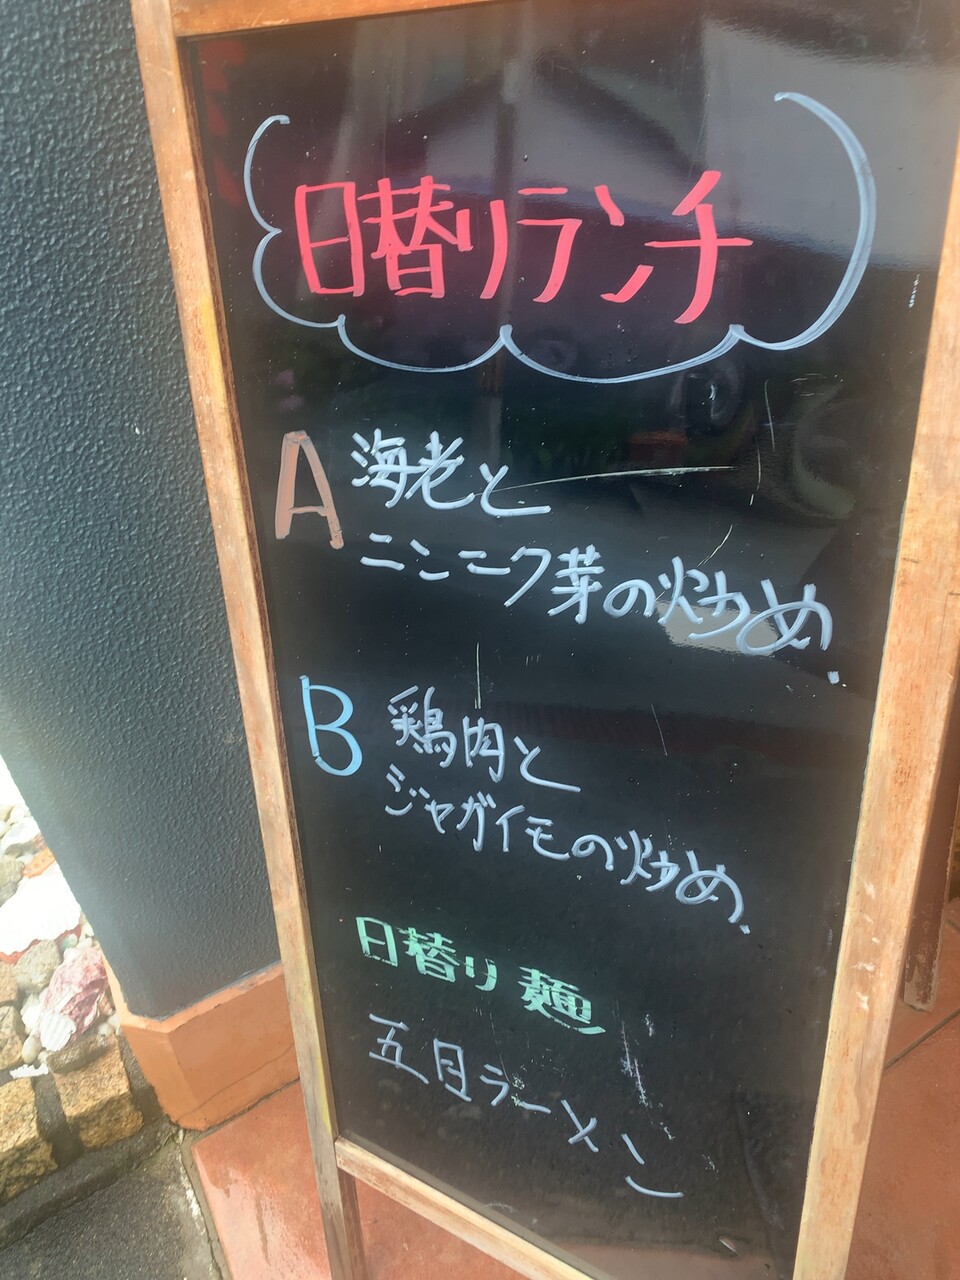 日替りランチ
A 海老と
ニンニク芽の炒め.
B 鶏肉と
ジャガイモの炒め.
日替り麺
五目ラーメン